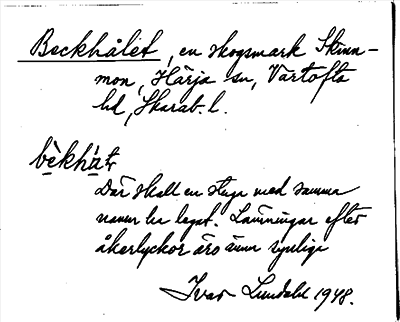 Beckhålet, en skogsmark Skinn-
mon, Härja sn, Vartofta
hd, Skarab. l.
bèkhåt
Där skall en stuga med samma
namn ha legat. Lämningar efter
åkerlyckor äro ännu synliga
Ivar Lundahl 1948.